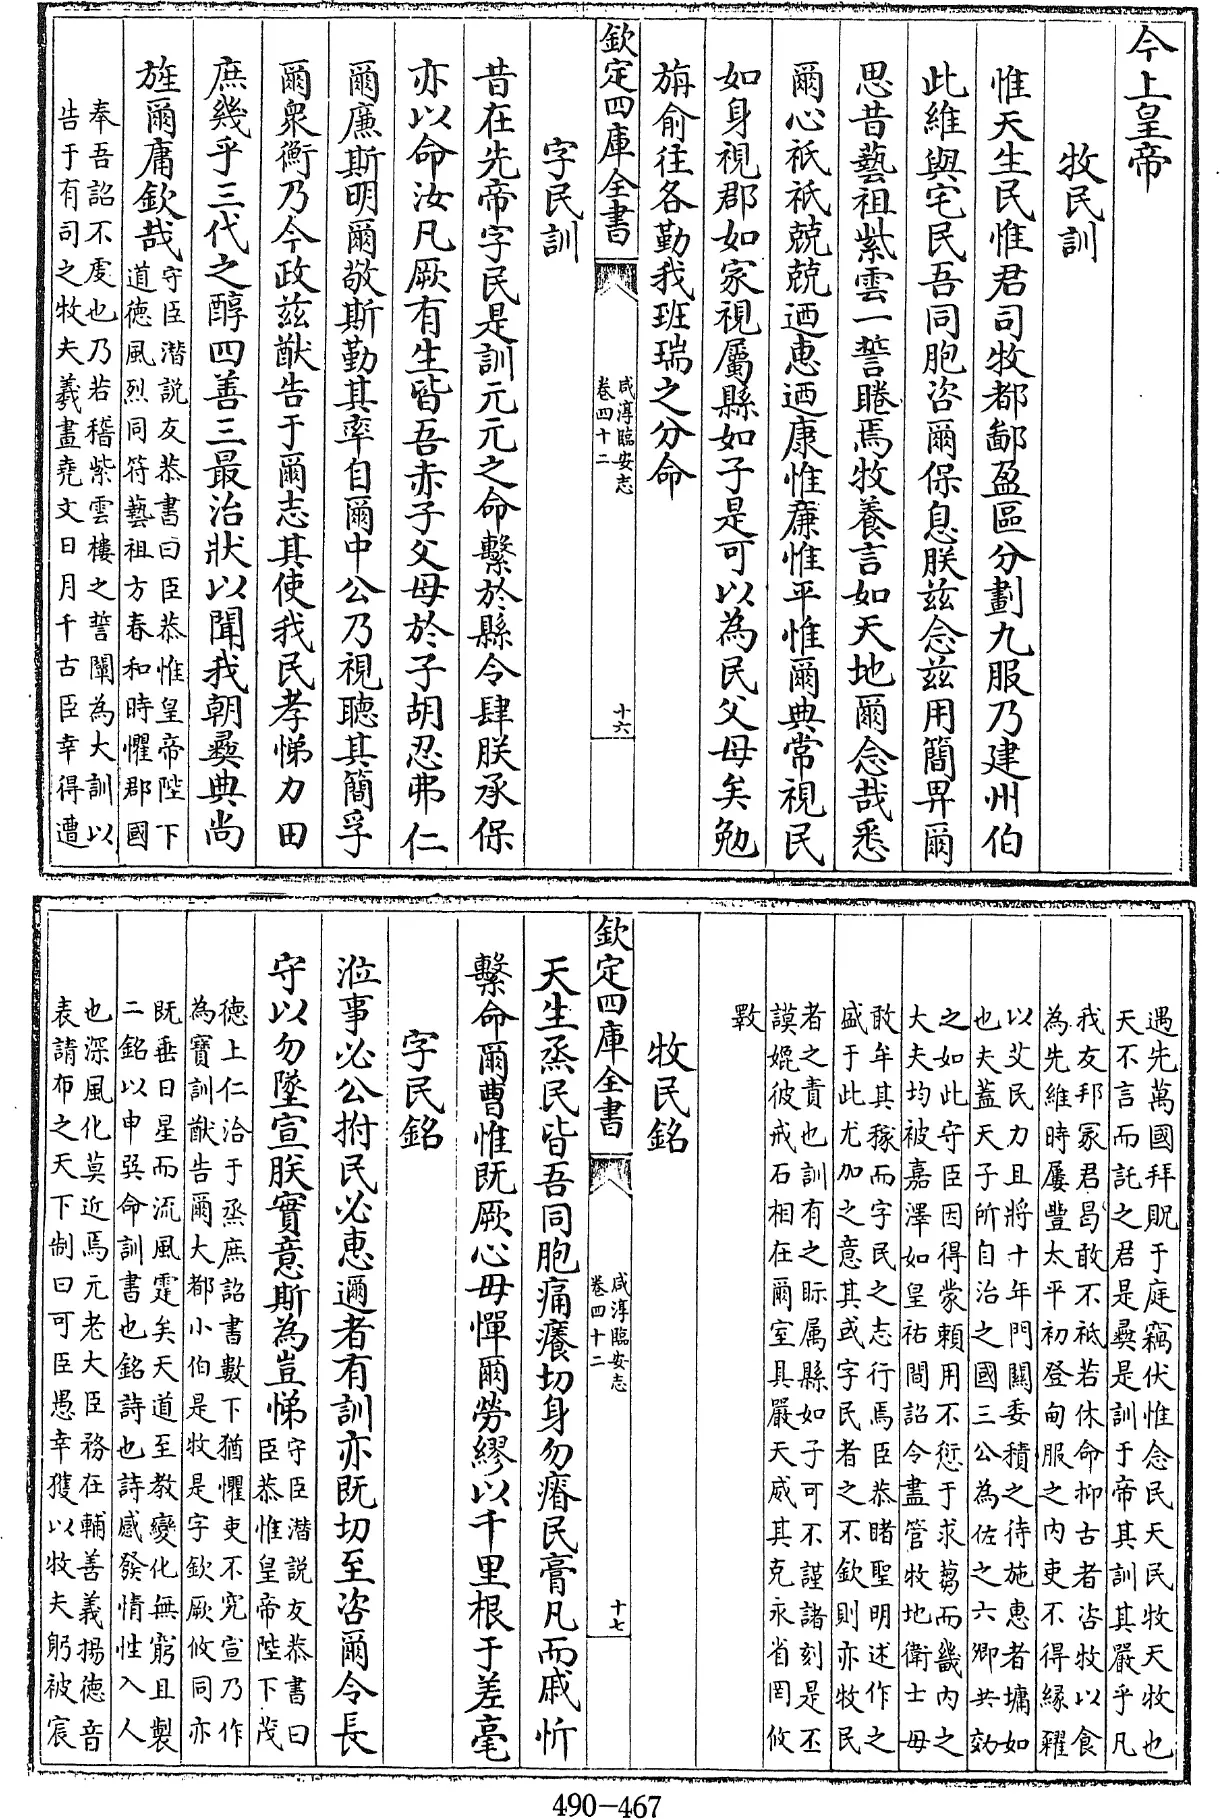 今上皇帝
牧民訓
惟天生民惟君司牧都鄙盈區分劃九服乃建州伯
此維與宅民吾同胞咨爾保息朕兹念兹用簡畀爾
思昔藝祖紫雲一誓睠焉牧養言如天地爾念哉悉
爾心祇祇兢兢迺惠迺康惟亷惟平惟爾典常視民
如身視郡如家視屬縣如子是可以為民父母矣勉
旃俞往各勤我班瑞之分命
欽定四庫全書
咸淳臨安志
卷四十二
十六
字民訓
昔在先帝字民是訓元元之命繫於縣令肆朕承保
亦以命汝凡厥有生皆吾赤子父母於子胡忍弗仁
爾亷斯明爾敬斯勤其率自爾中公乃視聽其簡孚
爾衆衡乃今政兹猷告于爾志其使我民孝悌力田
庶幾乎三代之醇四善三最治狀以聞我朝彞典尚
旌爾庸欽哉
守臣潛説友恭書曰臣恭惟皇帝陛下
道德風烈同符藝祖方春和時懼郡國
奉吾詔不䖍也乃若稽紫雲樓之誓闡為大訓以
告于有司之牧夫羲畫堯文日月千古臣幸得遭
遇先萬國拜貺于庭竊伏惟念民天民牧天牧也
天不言而託之君是彞是訓于帝其訓其嚴乎凡
我友邦冢君曷敢不祗若休命抑古者咨牧以食
為先維時屢豐太平初登甸服之内吏不得緣糴
以艾民力且將十年門關委積之待施惠者墉如
也夫蓋天子所自治之國三公為佐之六卿共効
之如此守臣因得蒙賴用不愆于求芻而畿内之
大夫均被嘉澤如皇祐間詔令盡管牧地衛士毋
敢牟其稼而字民之志行焉臣恭睹聖明述作之
盛于此尤加之意其或字民者之不欽則亦牧民
者之責也訓有之眎属縣如子可不謹諸刻是丕
謨媲彼戒石相在爾室具嚴天威其克永省罔攸
斁
牧民銘
欽定四庫全書
咸淳臨安志
卷四十二
十七
天生烝民皆吾同胞痛癢切身勿瘠民膏凡而戚忻
繫命爾曹惟既厥心毋憚爾勞繆以千里根于差毫
字民銘
涖事必公拊民必惠邇者有訓亦既切至咨爾令長
守以勿墜宣朕實意斯為豈悌
守臣潛説友恭書曰
臣恭惟皇帝陛下茂
德上仁洽于烝庶詔書數下猶懼吏不究宣乃作
為寶訓猷告爾大都小伯是牧是字欽厥攸同亦
既垂日星而流風霆矣天道至教變化無窮且製
二銘以申巽命訓書也銘詩也詩感發情性入人
也深風化莫近焉元老大臣務在輔善義揚德音
表請布之天下制曰可臣愚幸獲以牧夫躬被宸
490-467